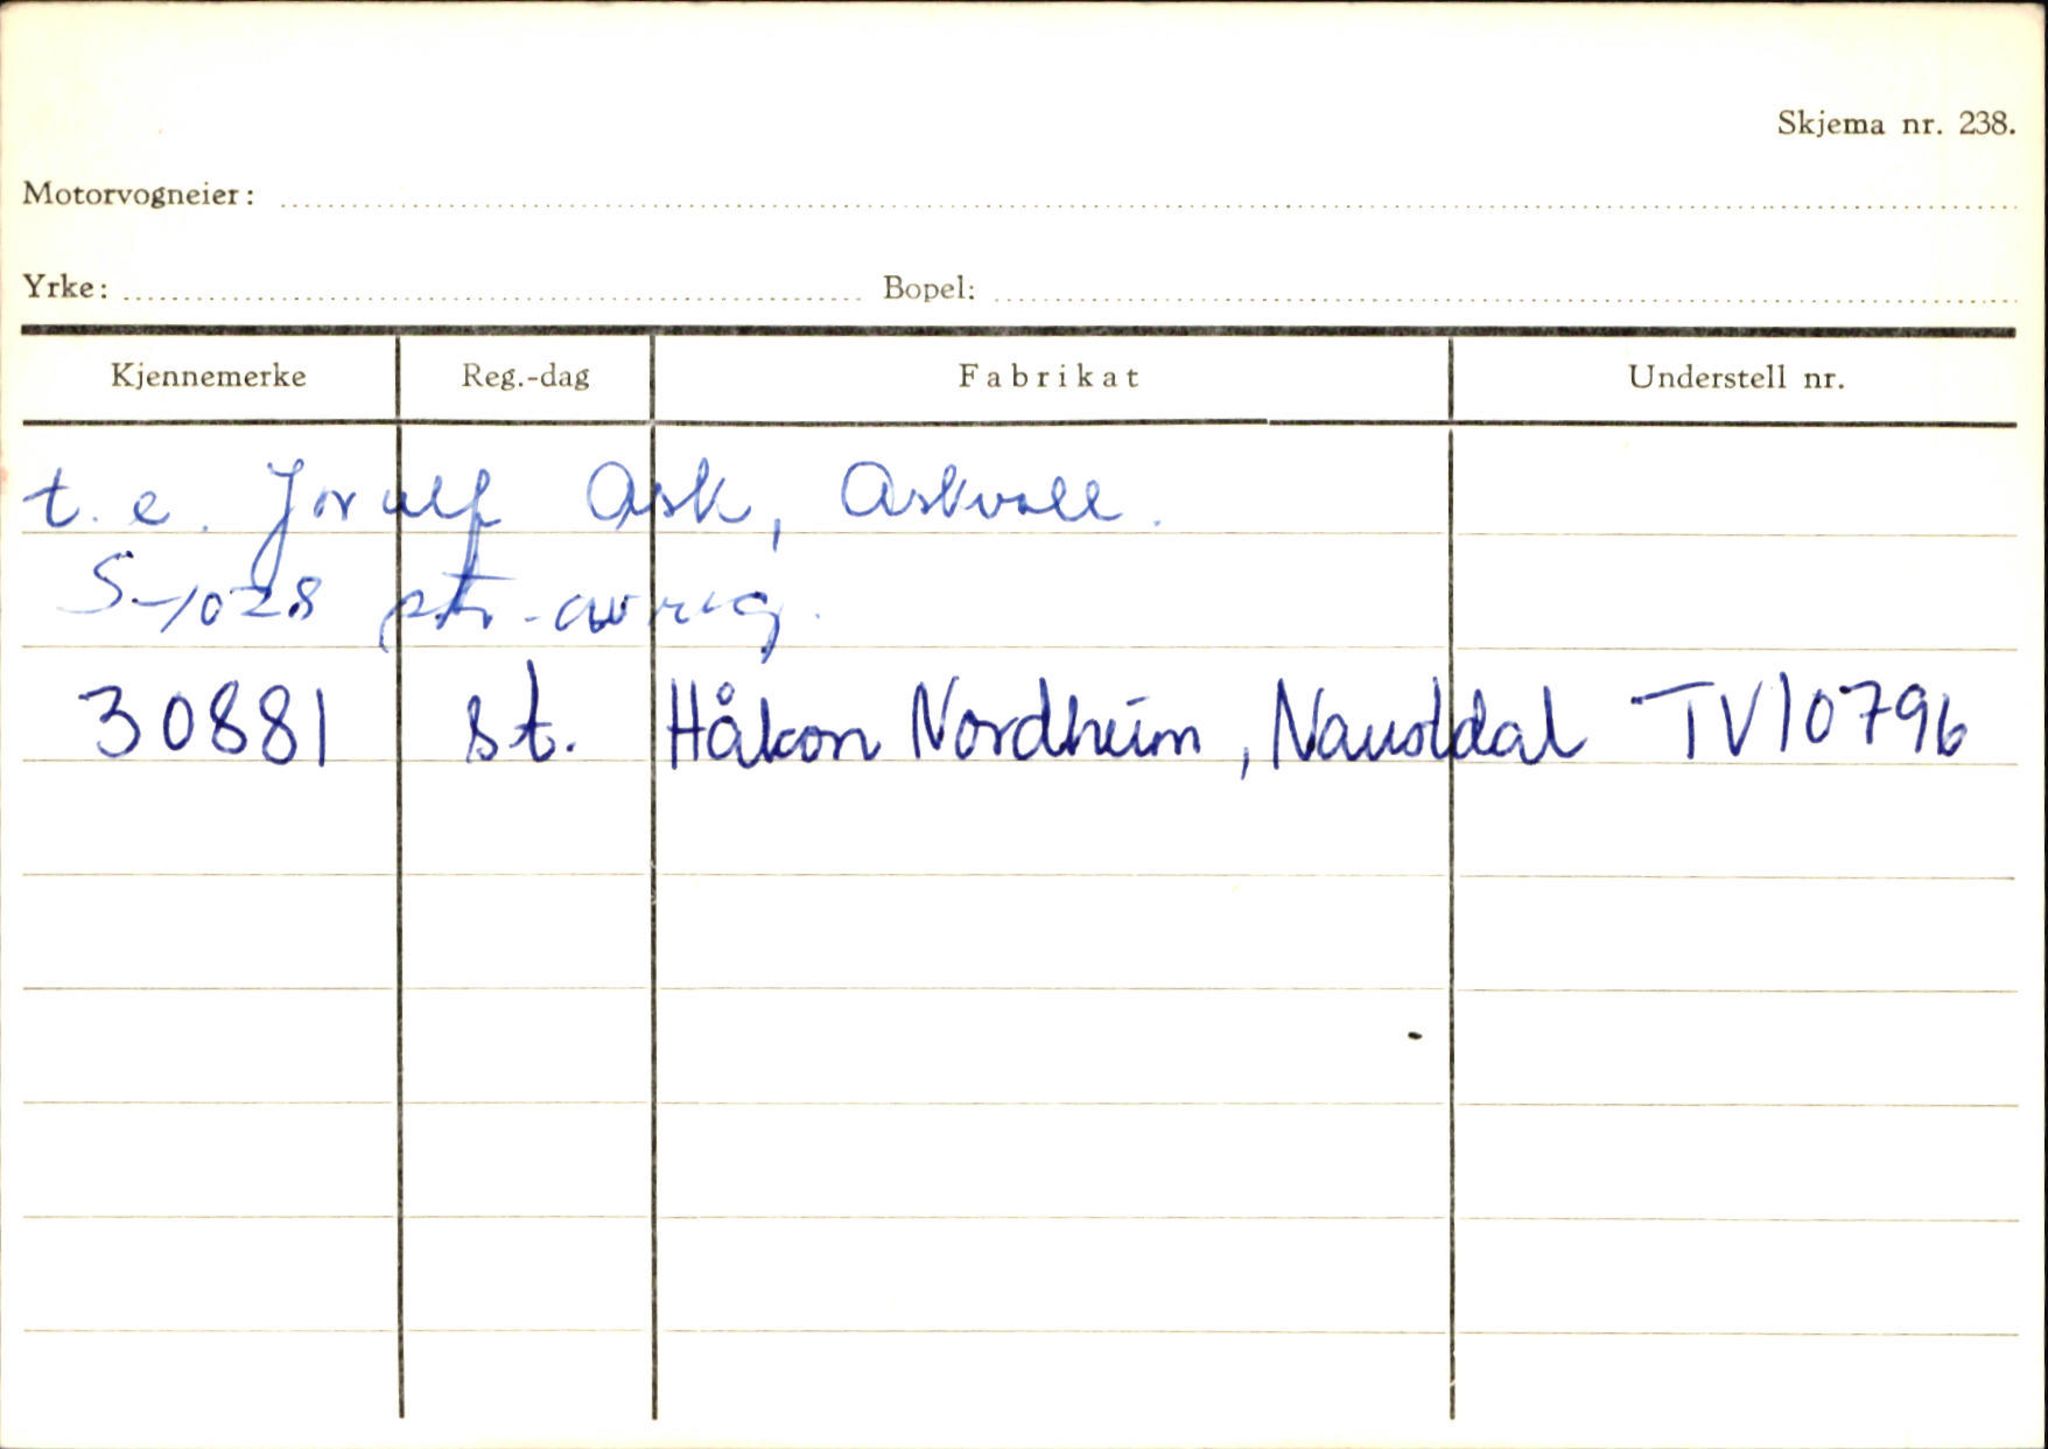 Skjema nr. 238.
Motorvogneier:
Yrke: Bopel:
Kjennemerke Reg.-dag Fabrikat Understell nr.
t. e. Jorulf Ask, Askvoll.
S-1028 ptr-avreg.
30881 st. Håkon Nordheim, Naustdal TV10796